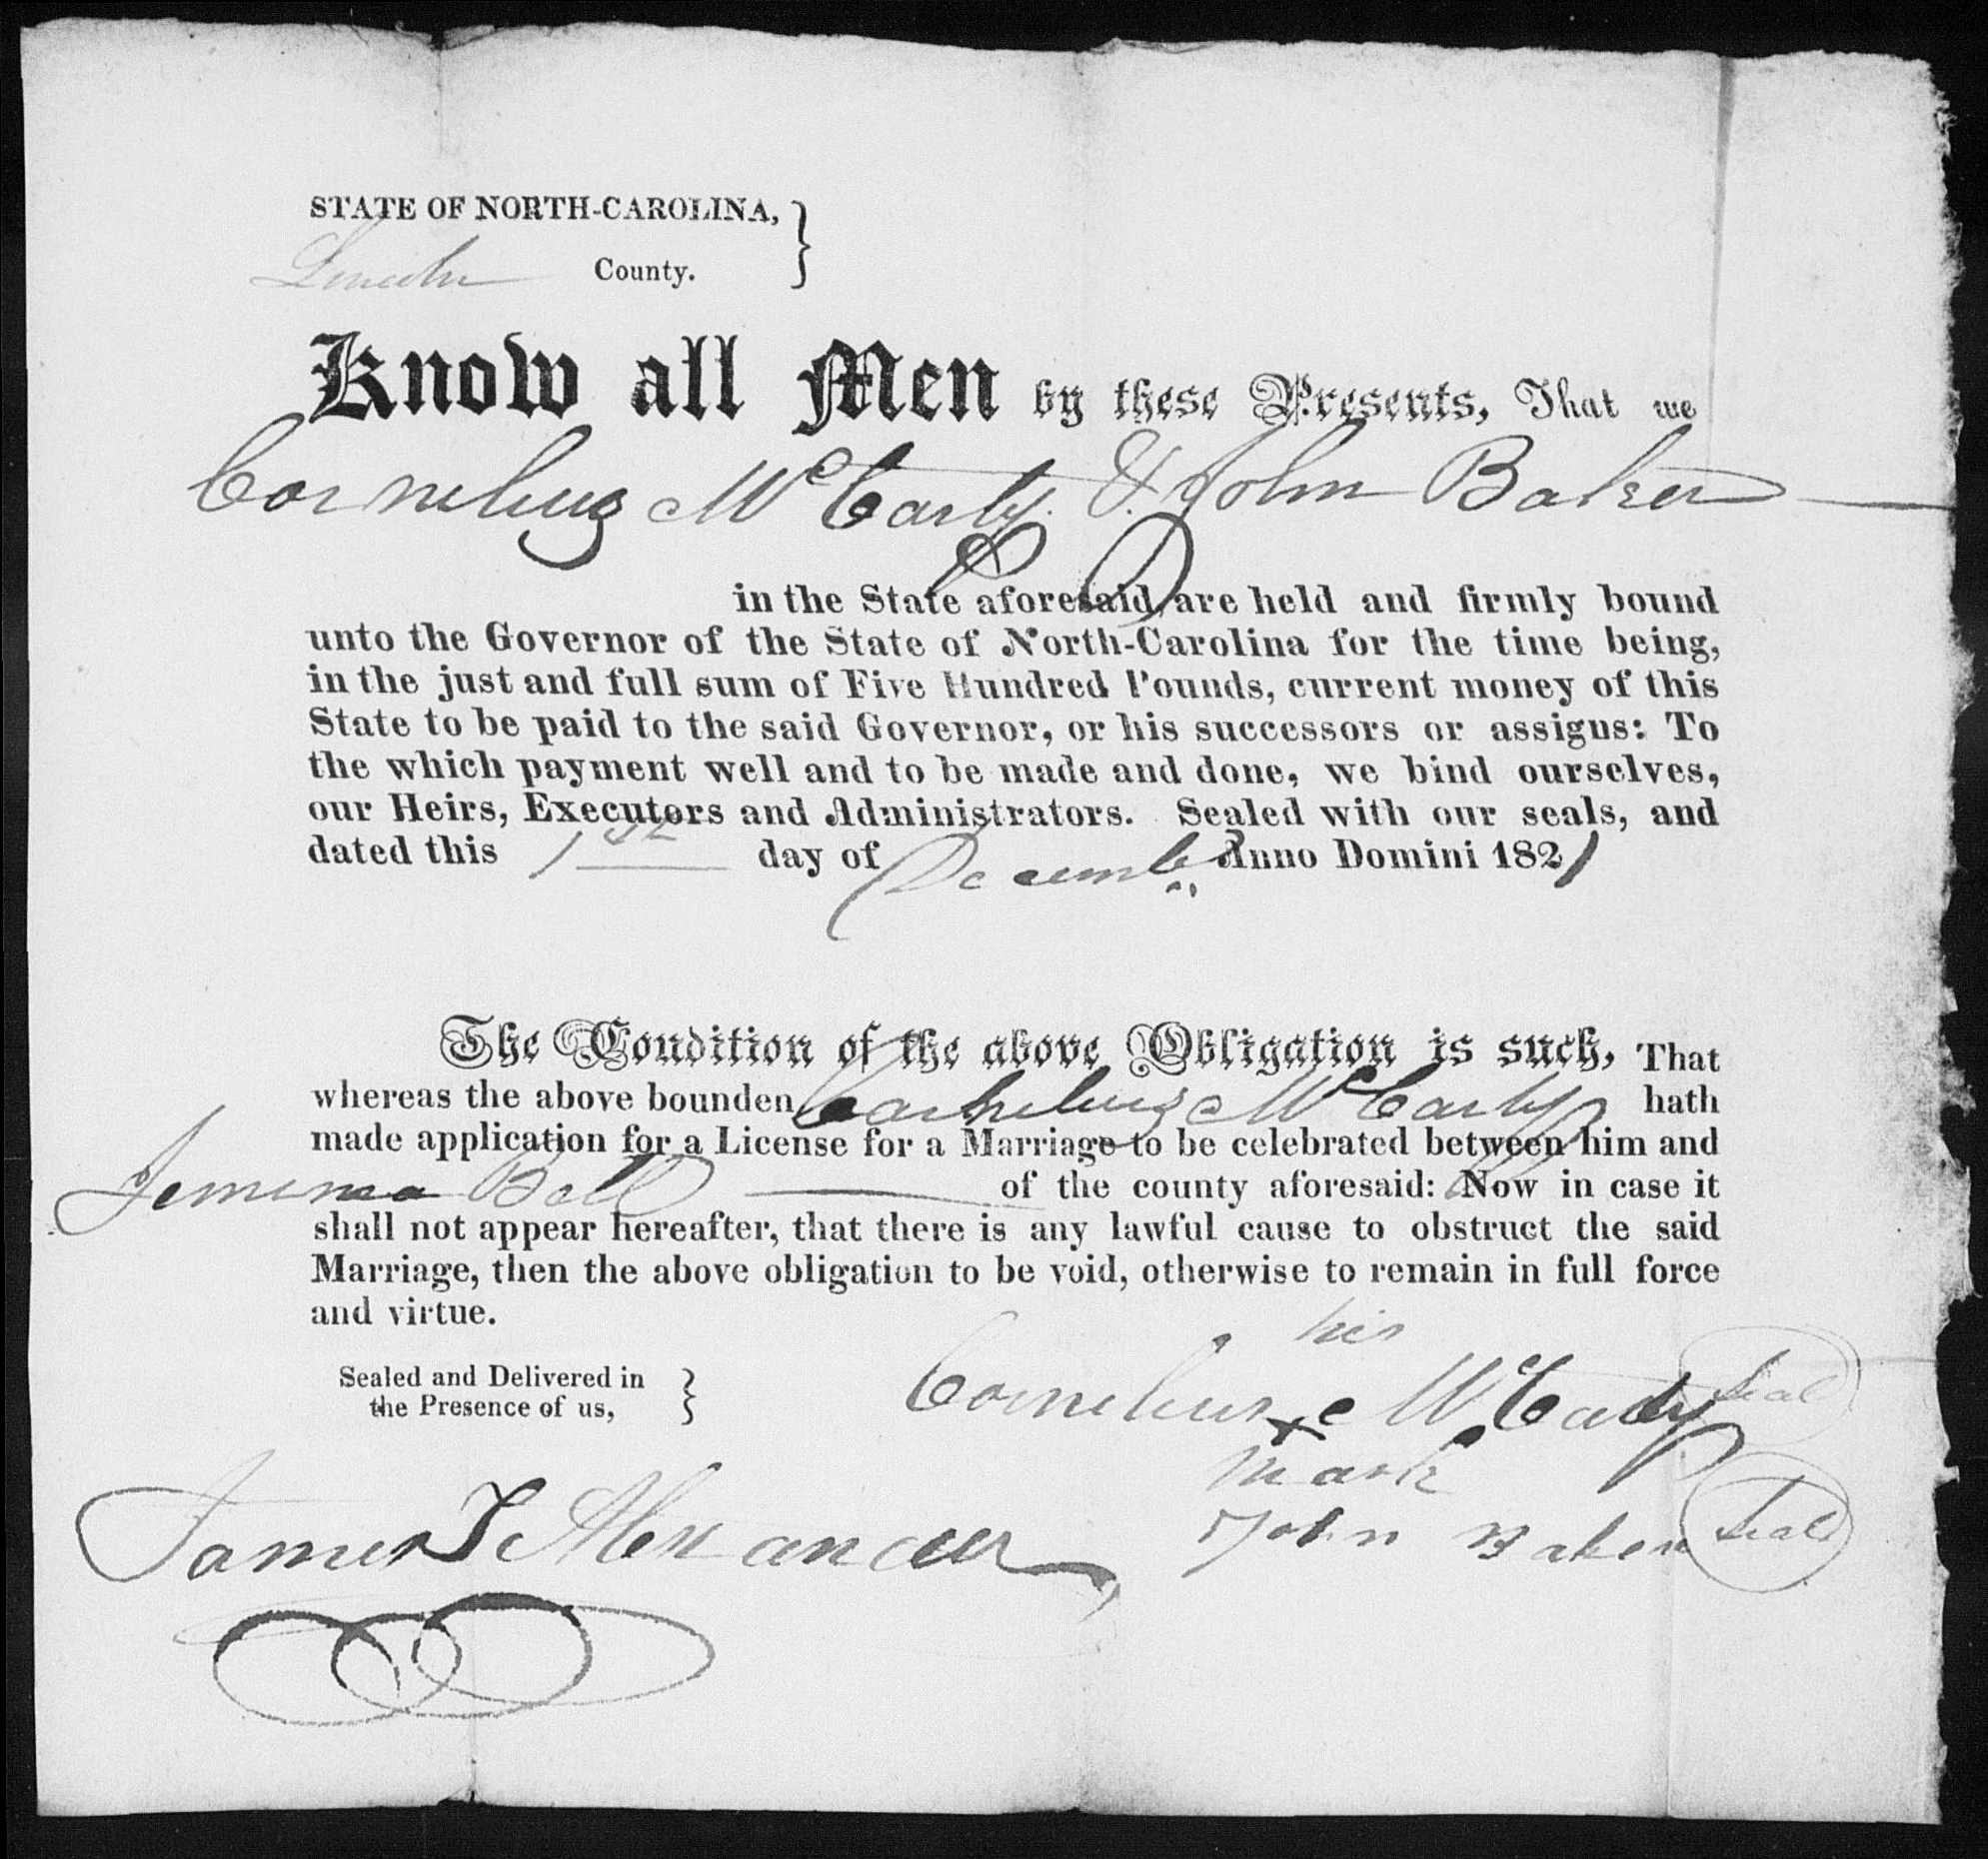 STATE OF NORTH-CAROLINA, }
Lincoln County.
Know all Men by these Presents, That we
Cornelius McCarty & John Baker
in the State aforesaid, are held and firmly bound
unto the Governor of the State of North-Carolina for the time being,
in the just and full sum of Five Hundred Pounds, current money of this
State to be paid to the said Governor, or his successors or assigns: To
the which payment well and to be made and done, we bind ourselves,
our Heirs, Executors and Administrators. Sealed with our seals, and
dated this 1st day of Decembr Anno Domini 1821
The Condition of the above Obligation is such, That
whereas the above bounden Cornelius McCarty hath
made application for a License for a Marriage to be celebrated between him and
Jemima Bell of the county aforesaid: Now in case it
shall not appear hereafter, that there is any lawful cause to obstruct the said
Marriage, then the above obligation to be void, otherwise to remain in full force
and virtue.
his
Sealed and Delivered in }
the Presence of us,
Cornelius x McCarty Seal
mark
James T Alexander
John Baker Seal